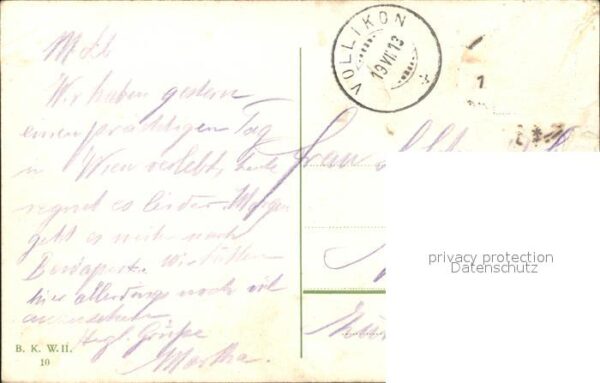 M. Lb
Wir haben gestern
einen prächtigen Tag
in Wien verlebt, heute
regnet es leider. Morgen
geht es weiter nach
Budapest. Wir hätten
hier allerdings noch viel
anzusehen.
Herzl. Grüße
Martha.
B. K. W. II.
10
VOLLIKON
19 VII 13
1
Frau
privacy protection
Datenschutz